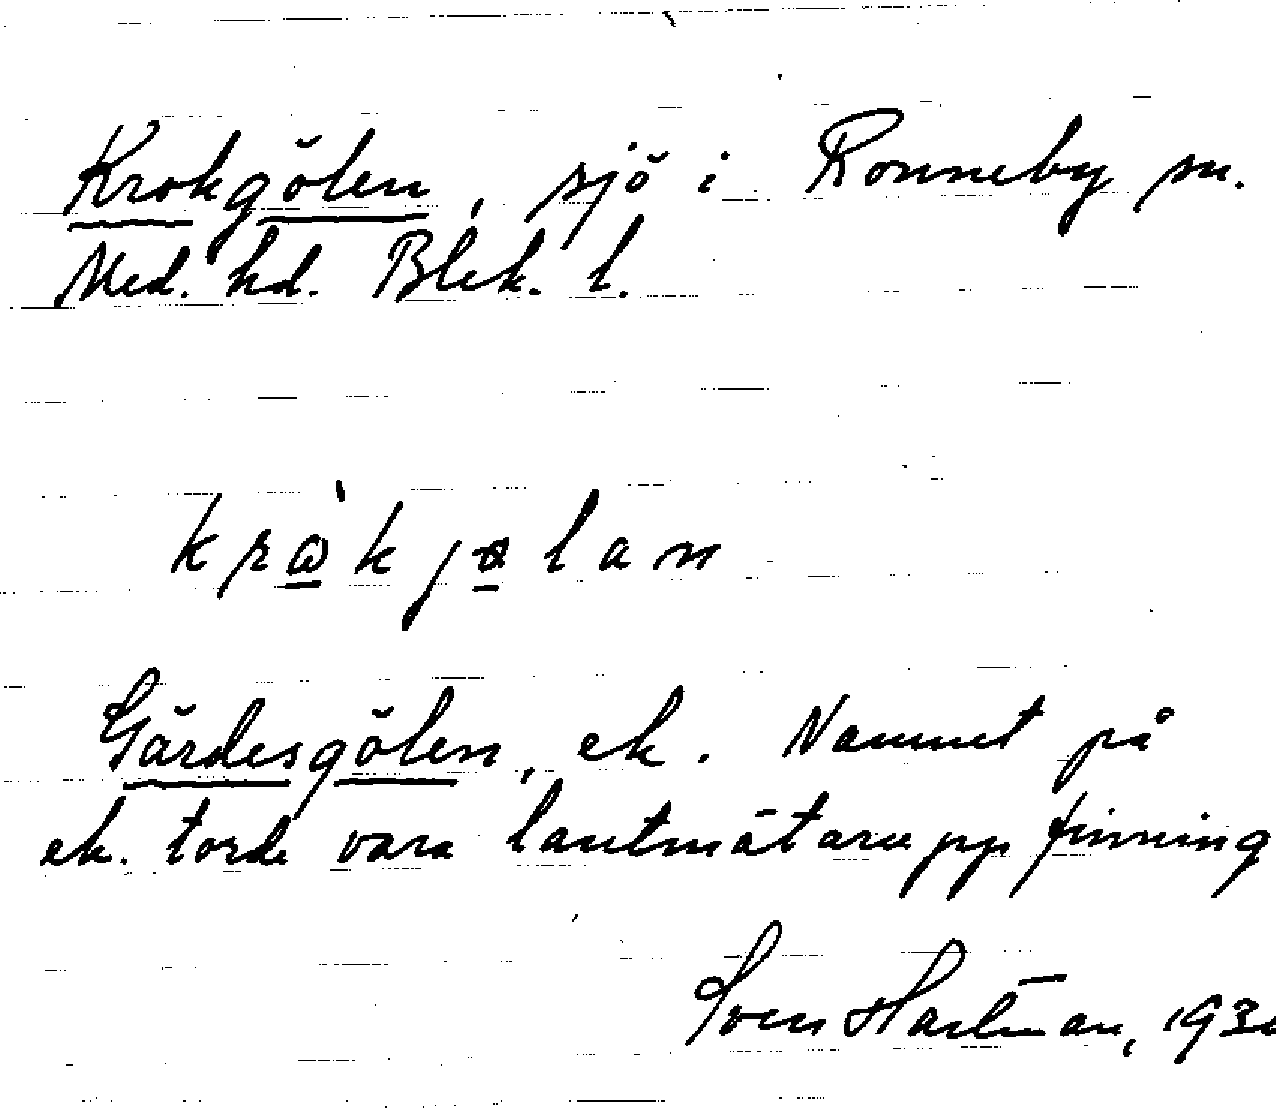 Krokgölen, sjö i Ronneby sn.
Med. hd. Blek. l.
Gärdesgölen, ek. Namnet på
ek. torde vara lantmätaruppfinning
Sven Hartman, 193